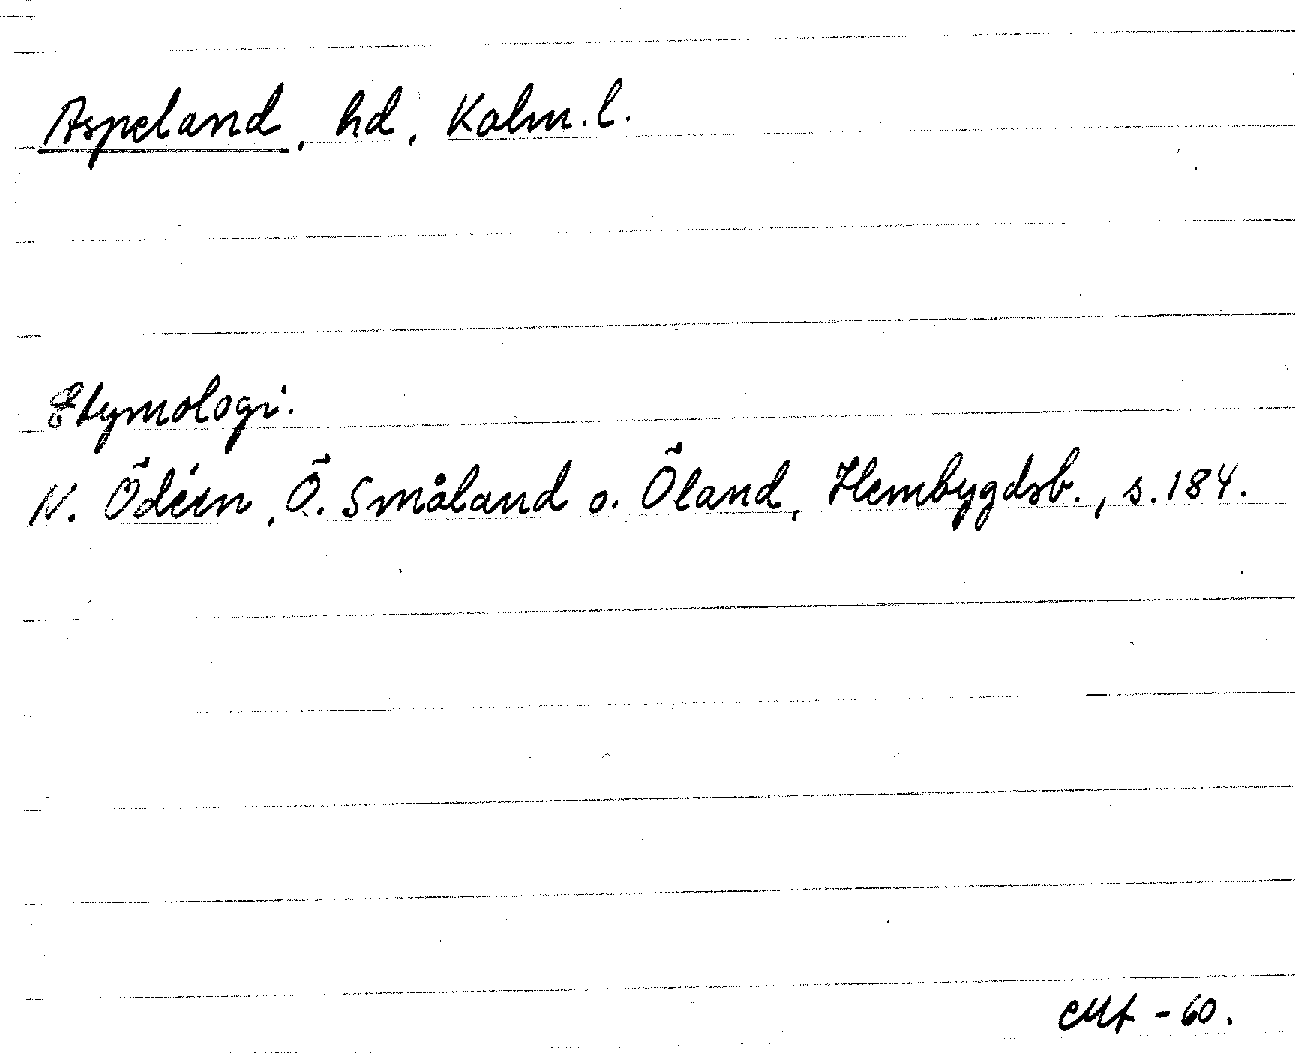 Aspeland, hd, Kalm. l.
Etymologi.
N. Ödéen, Ö. Småland o. Öland, Hembygdsb., s. 184.
-60.